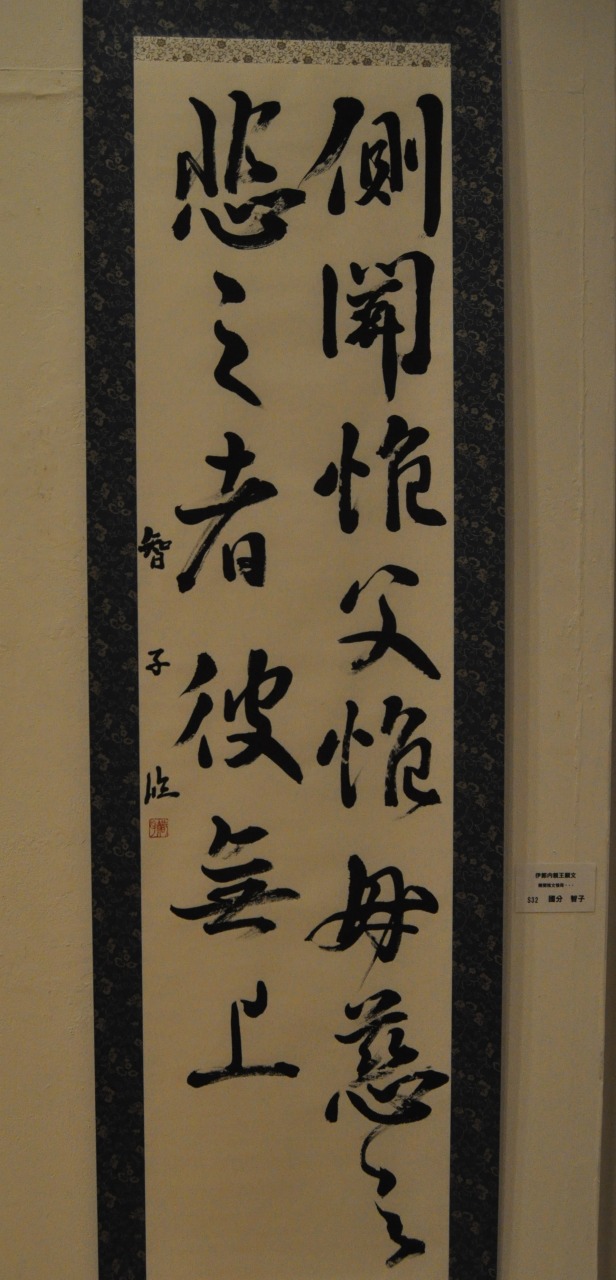 側聞恑父恑母慈之
悲之者彼無上
智子臨
伊都内親王願文
532 國分 智子